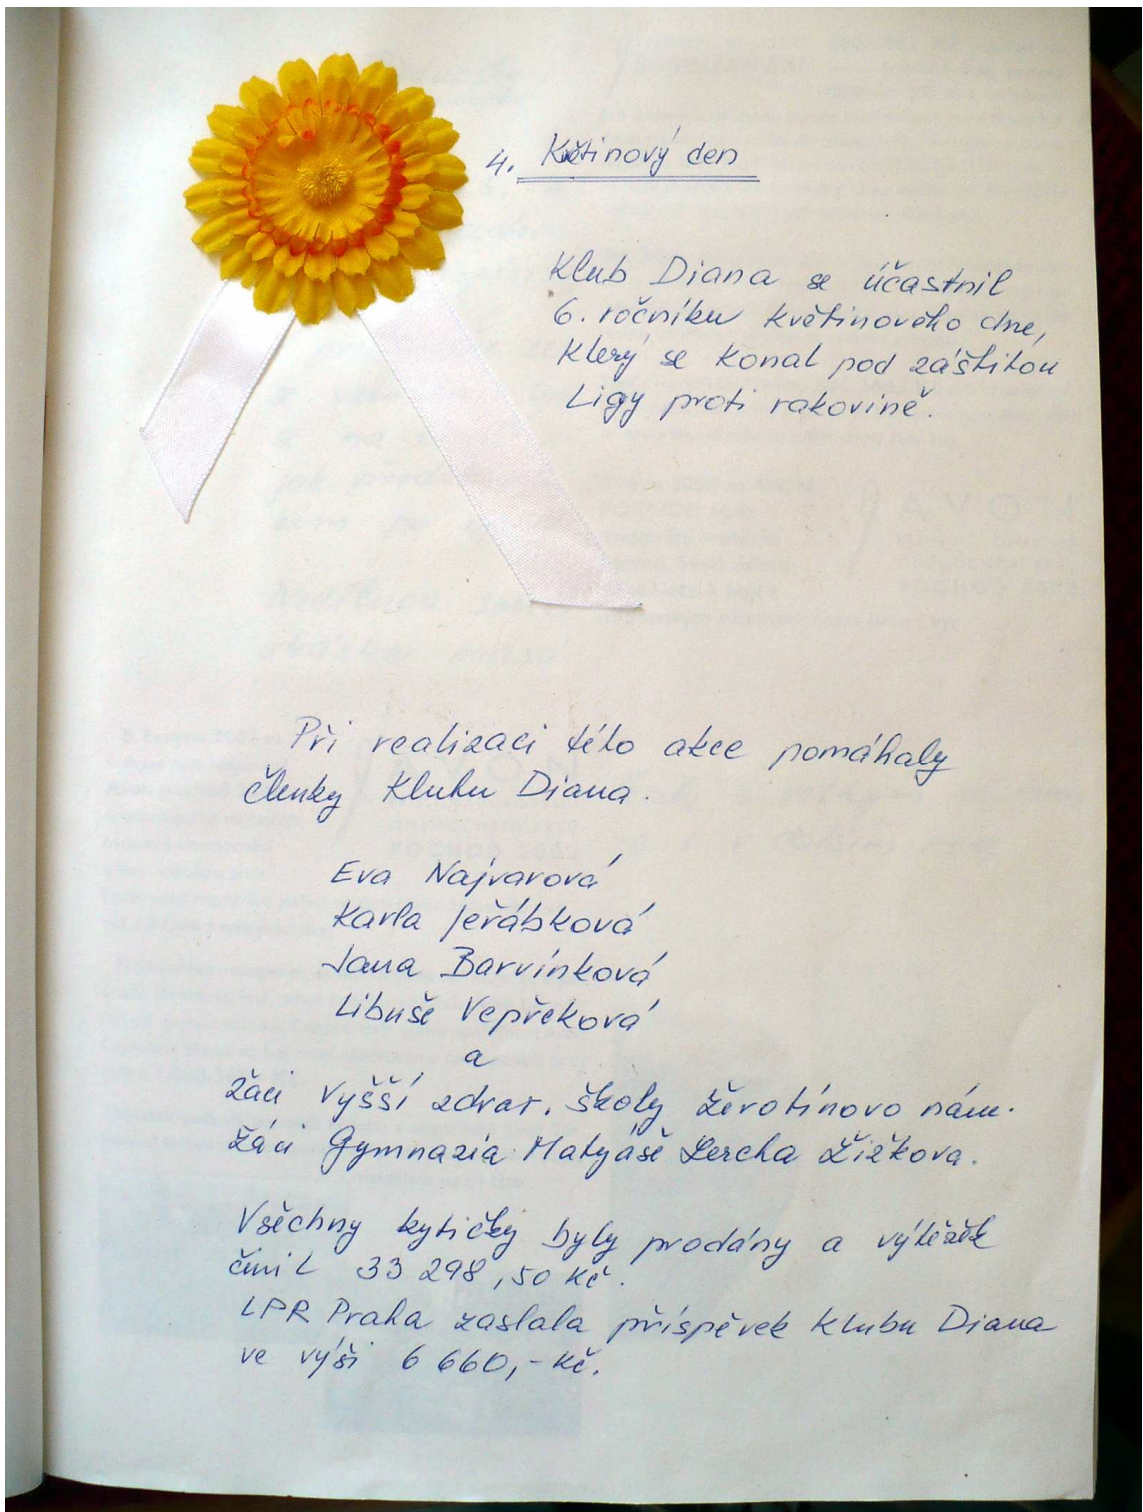 4. Květinový den
Klub Diana se účastnil
6. ročníku květinového dne,
který se konal pod záštitou
Ligy proti rakovině.
Při realizaci této akce pomáhaly
členky Klubu Diana.
Eva Najvarová
Karla Jeřábková
Jana Barvínková
Libuše Vepřeková
a
žáci Vyšší zdrav. školy Žerotínovo nám.
žáci Gymnazia Matyáše Lercha Žižkova.
Všechny kytičky byly prodány a výtěžek
činil 33 298,50 Kč.
LPR Praha zaslala příspěvek Klubu Diana
ve výši 6 660,- Kč.